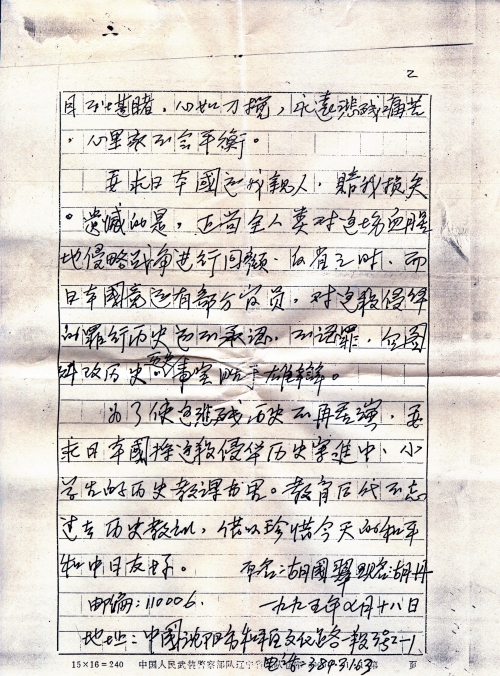 2
目不忍睹，心如刀搅，永远悲残痛苦
，心里永不会平衡。
要求日本國还我親人，赔我损失
。遗憾的是，正当全人类对这场血腥
地侵略战争进行回顾、反省之时，而
日本國竟还有部分官员，对这段侵华
的罪行历史而不承認，不認罪，企图
篡改历史，事实胜于雄辩。
为了使这悲残历史不再重演，要
求日本國将这段侵华历史写進中、小
学生的历史教课书里。教育后代不忘
过去历史教训，借以珍惜今天的和平
和中日友好。 原名：胡國 现名：胡丹
邮编：110006. 一九九五年 月十八日
地址：中國沈阳市和平区文化路
15×16=240 中国人民武装警察部队辽宁省 页
电话：3893163